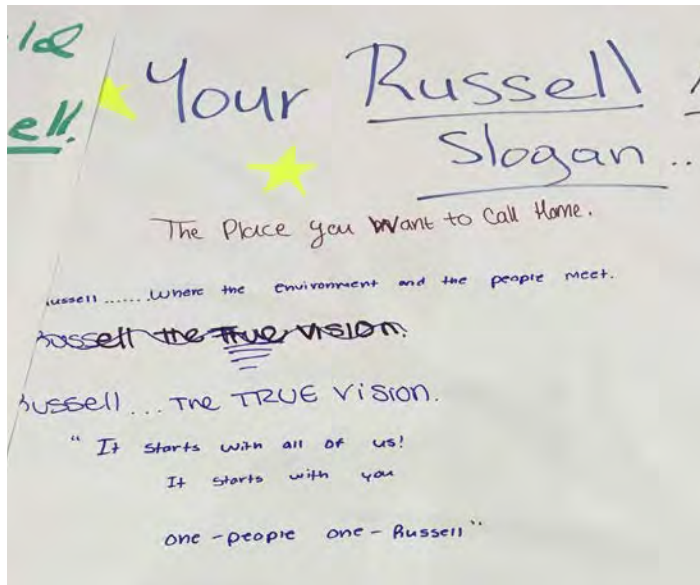 ell!
Your Russell
Slogan ..
The Place you Want to Call Home.
ussell ....... Where the environment and the people meet.
Russell the True Vision.
Russell ... The TRUE Vision.
"It starts with all of us!
It starts with you
one-people one-Russell"